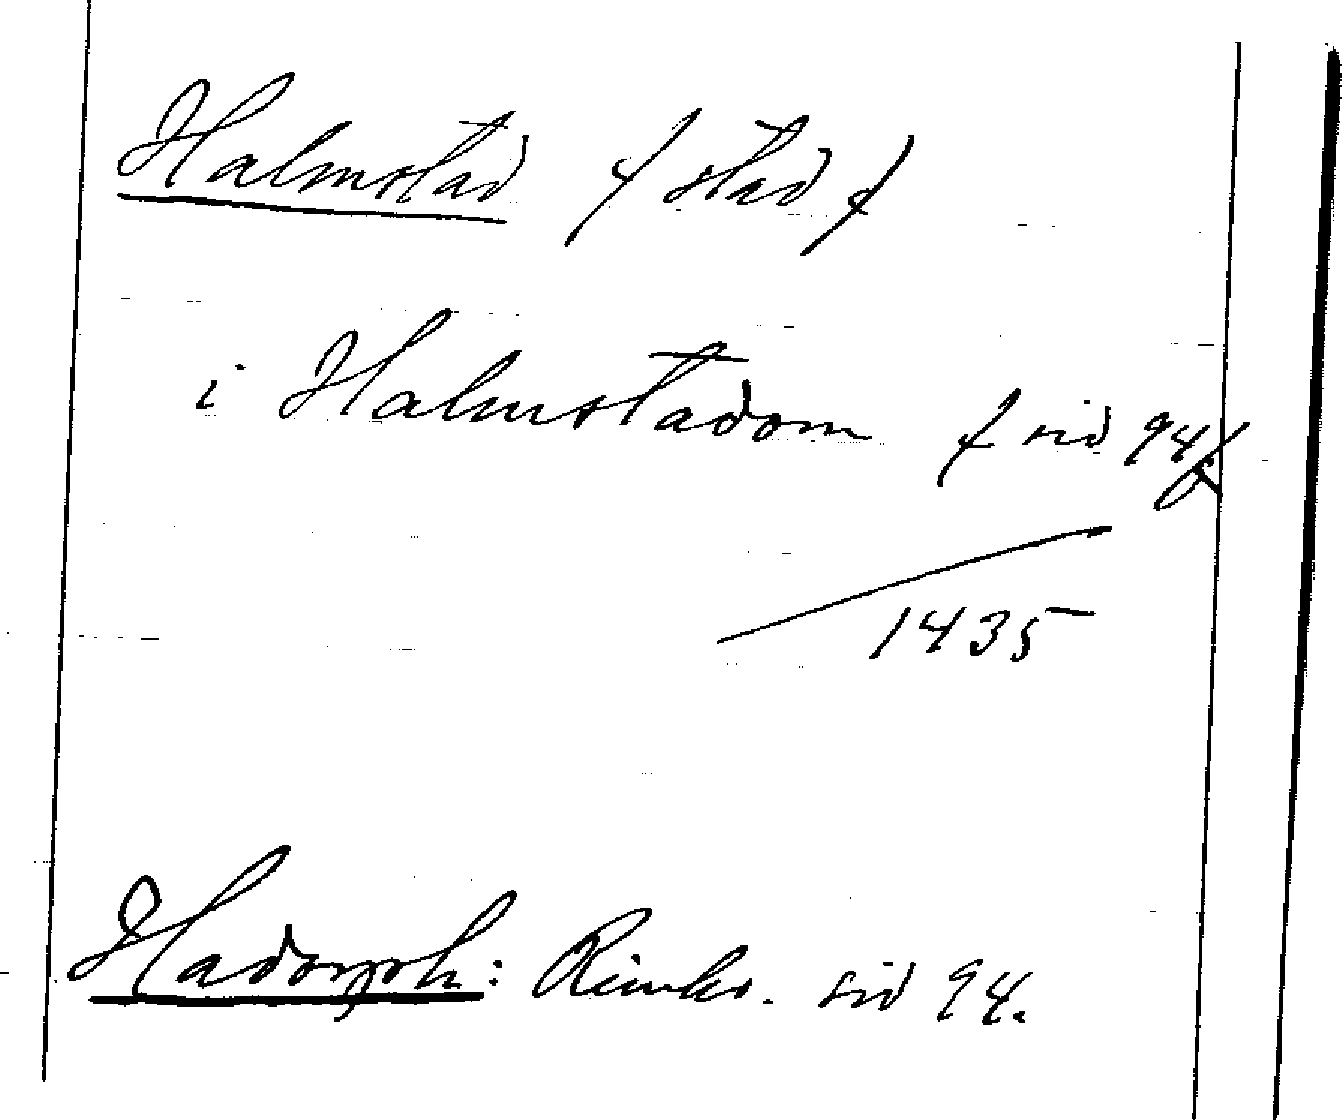 Halmstad / stad /
i Halmstadom / sid 94/
1435
Hadorph: Rimkr. sid 94.